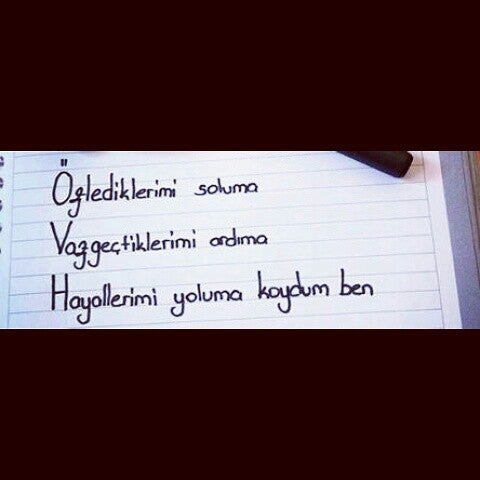 Özlediklerimi soluma
Vazgeçtiklerimi ardıma
Hayallerimi yoluma koydum ben